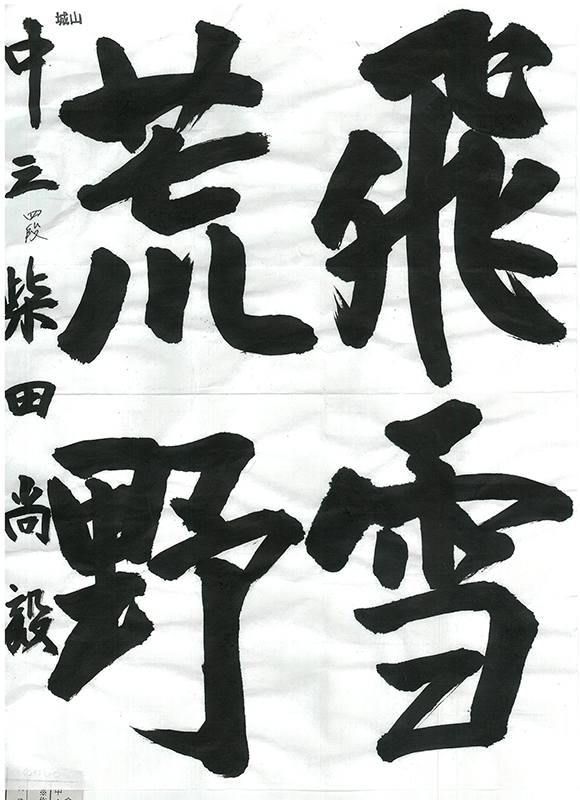 飛雪
荒野
城山
中三 四段 柴田尚毅